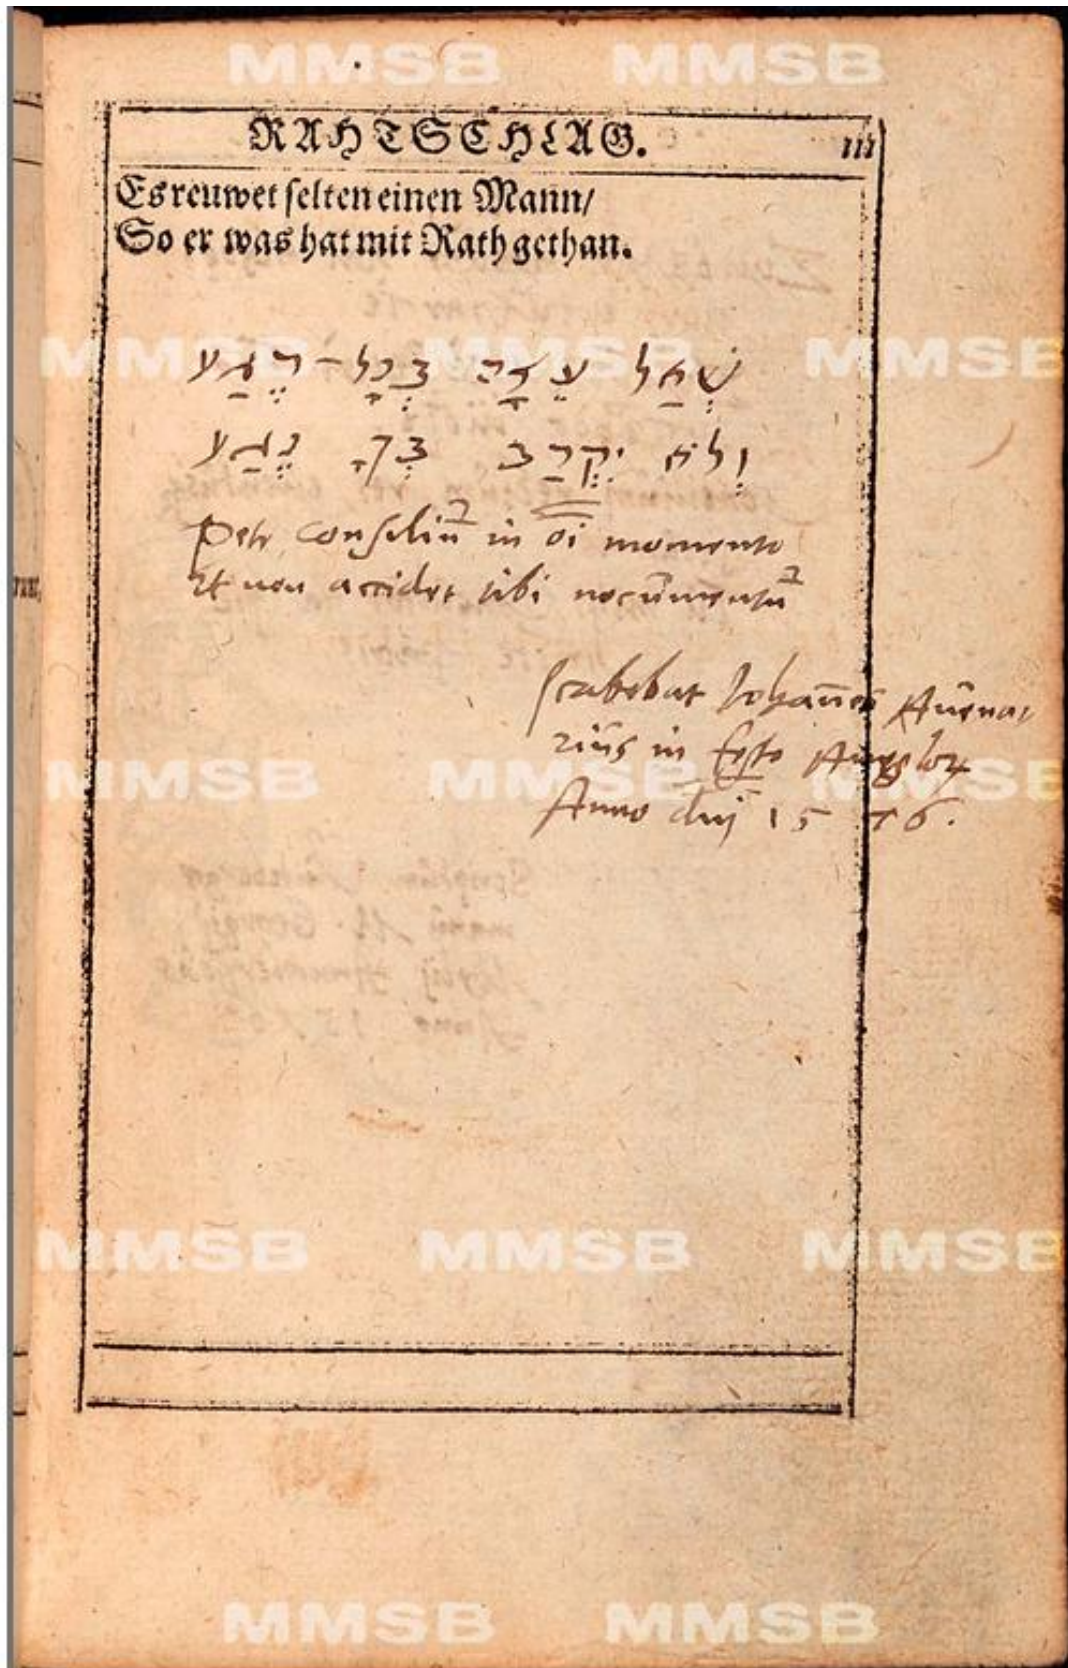 RAHTSCHLAG. iii
Es reuwet selten einen Mann/
So er was hat mit Rath gethan.
שְׁאַל עֵצָה בְּכָל־רֶגַע
וְלֹא יִקְרַב בְּךָ נֶגַע
Pete consiliū in oī momento
Et non accidet tibi nocūmentū
scribebat Johañes Auena
rius in festo Angelorꝝ
Anno dnj 1576.
MMSB